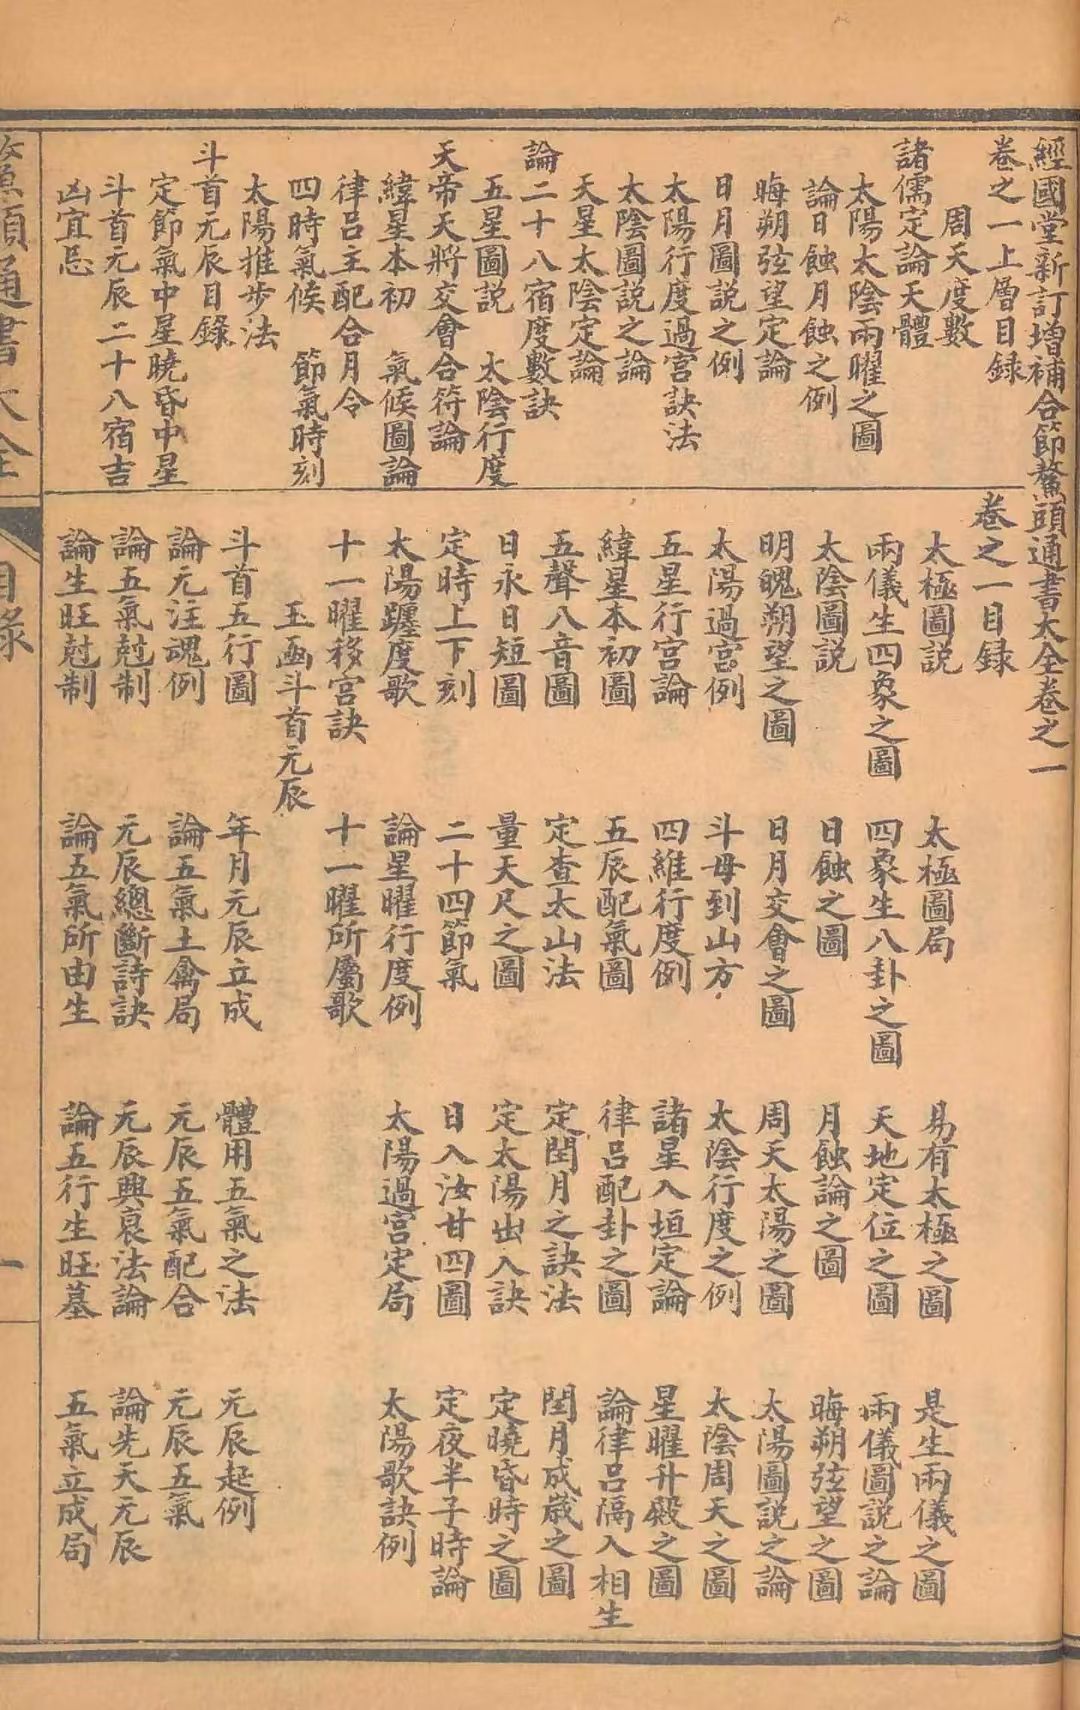 經國堂新訂增補合節鰲頭通書大全卷之一
卷之一上層目録
周天度數
諸儒定論天體
太陽太陰兩曜之圖
論日蝕月蝕之例
晦朔弦望定論
日月圖説之例
太陽行度過宮訣法
太陰圖説之論
天星太陰定論
論二十八宿度數訣
五星圖説 太陰行度
天帝天將交會合符論
緯星本初 氣候圖論
律呂主配合月令
四時氣候 節氣時刻
太陽推步法
斗首元辰目錄
定節氣中星曉昏中星
斗首元辰二十八宿吉
凶宜忌
卷之一目録
太極圖説 太極圖局 易有太極之圖 是生兩儀之圖
兩儀生四象之圖 四象生八卦之圖 天地定位之圖 兩儀圖説之論
太陰圖説 日蝕之圖 月蝕論之圖 晦朔弦望之圖
明魄朔望之圖 日月交會之圖 周天太陽之圖 太陽圖説之論
太陽過宮例 斗母到山方 太陰行度之例 太陰周天之圖
五星行宮論 四維行度例 諸星入垣定論 星曜升殿之圖
緯星本初圖 五辰配氣圖 律呂配卦之圖 論律呂隔入相生
五聲八音圖 定查太山法 定閏月之訣法 閏月成歲之圖
日永日短圖 量天尺之圖 定太陽出入訣 定曉昏時之圖
定時上下刻 二十四節氣 日入汝廿四圖 定夜半子時論
太陽躔度歌 論星曜行度例 太陽過宮定局 太陽歌訣例
十一曜移宮訣 十一曜所屬歌
玉函斗首元辰
斗首五行圖 年月元辰立成 體用五氣之法 元辰起例
論元注魂例 論五氣土禽局 元辰五氣配合 元辰五氣
論五氣尅制 元辰總斷詩訣 元辰興衰法論 論先天元辰
論生旺尅制 論五氣所由生 論五行生旺墓 五氣立成局
鰲頭通書大全
目錄
一